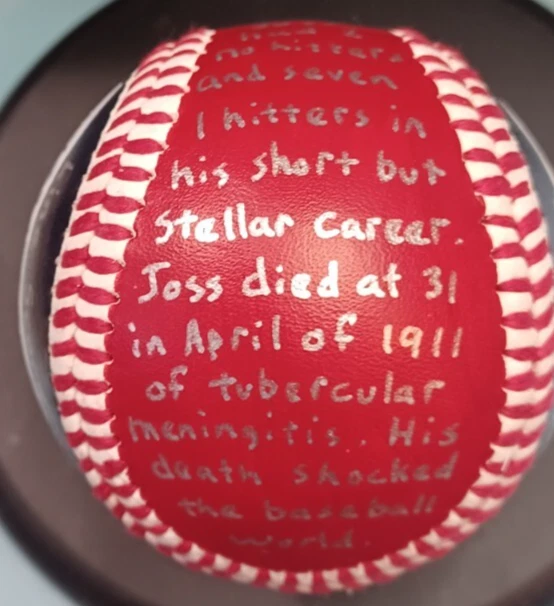 had 2
no hitters
and seven
1 hitters in
his short but
stellar career.
Joss died at 31
in April of 1911
of tubercular
meningitis. His
death shocked
the baseball
world.